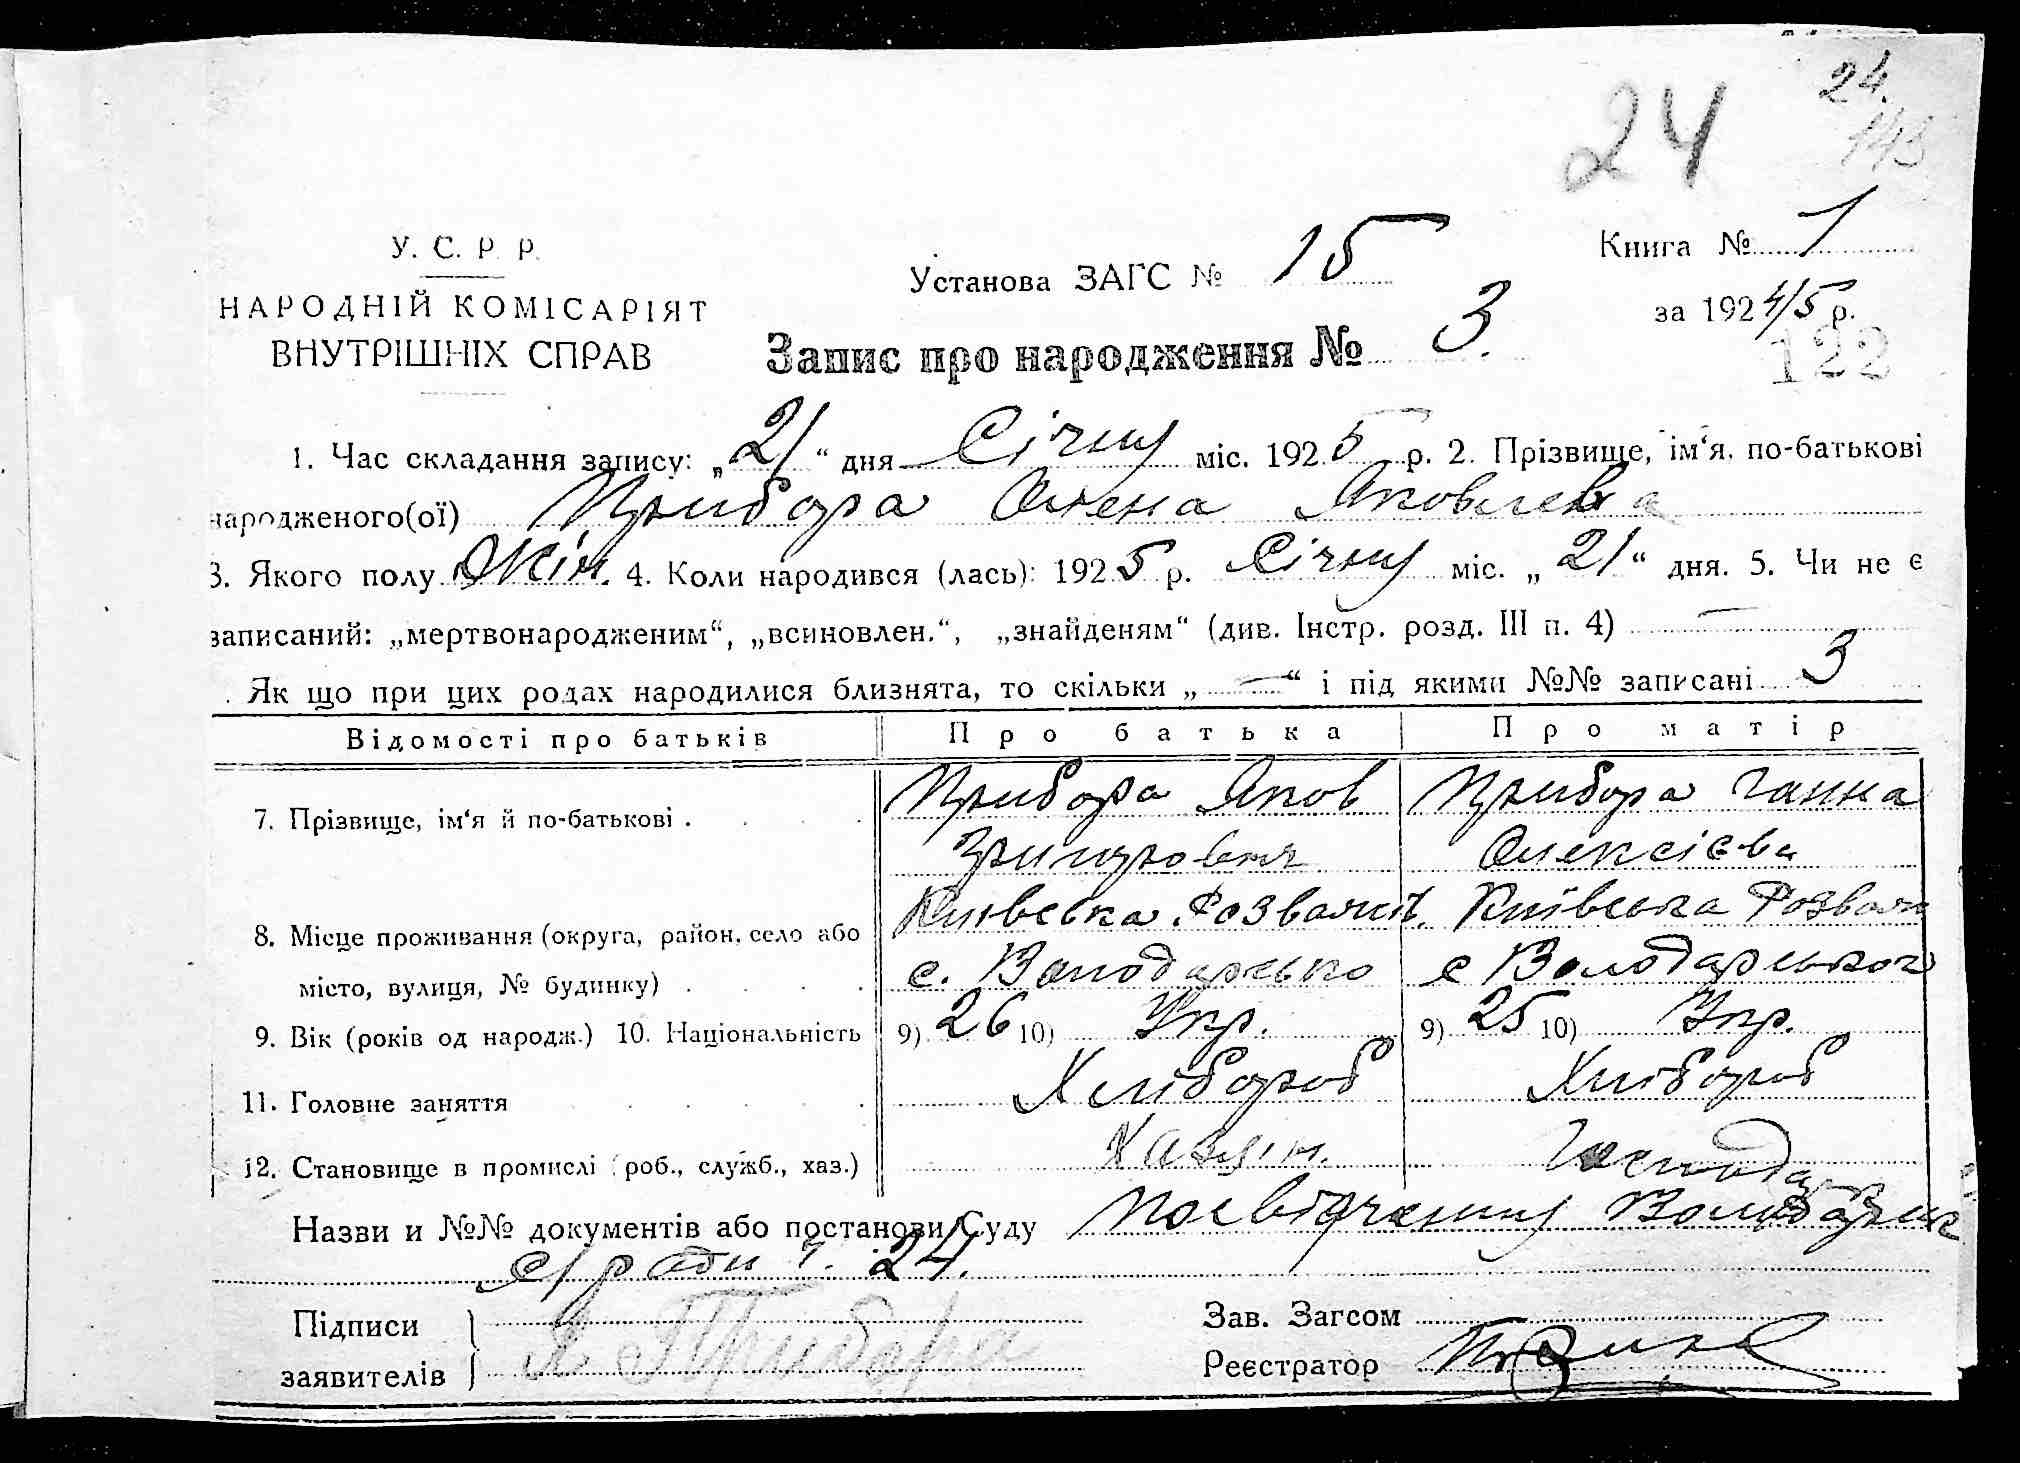 24.
24
143
У. С. Р. Р.
НАРОДНІЙ КОМІСАРІЯТ
ВНУТРІШНІХ СПРАВ
Установа ЗАГС № 15
Книга № 1
за 1924/5 р.
122
Запис про народження № 3.
1. Час складання запису: „21“ дня Січня міс. 1925 р. 2. Прізвище, ім‘я, по-батькові
народженого(ої) Прибора Олена Яковлева
3. Якого полу Жін. 4. Коли народився (лась): 1925 р. Січня міс. „21“ дня. 5. Чи не є
записаний: „мертвонародженим“, „всиновлен.“, „знайденям“ (див. Інстр. розд. III п. 4) —
. Як що при цих родах народилися близнята, то скільки „—“ і під якими №№ записані 3
Відомості про батьків
Про батька
Про матір
7. Прізвище, ім‘я й по-батькові .
Прибора Яков
Григорович
Прибора Ганна
Олексієва
8. Місце проживання (округа, район, село або
місто, вулиця, № будинку)
Київська Розваж
с. Володарсько
Київська Розваж
с Володарського
9. Вік (років од народж.) 10. Національність
9) 26 10) Укр.
9) 25 10) Укр.
11. Головне заняття
Хлібороб
Хлібороб
12. Становище в промислі (роб., служб., хаз.)
Хазяін.
Господ
Назви и №№ документів або постанови Суду Посвідчення Володарське
с/ради ч. 24.
Підписи
заявителів
Я Прибора
Зав. Загсом
Реєстратор